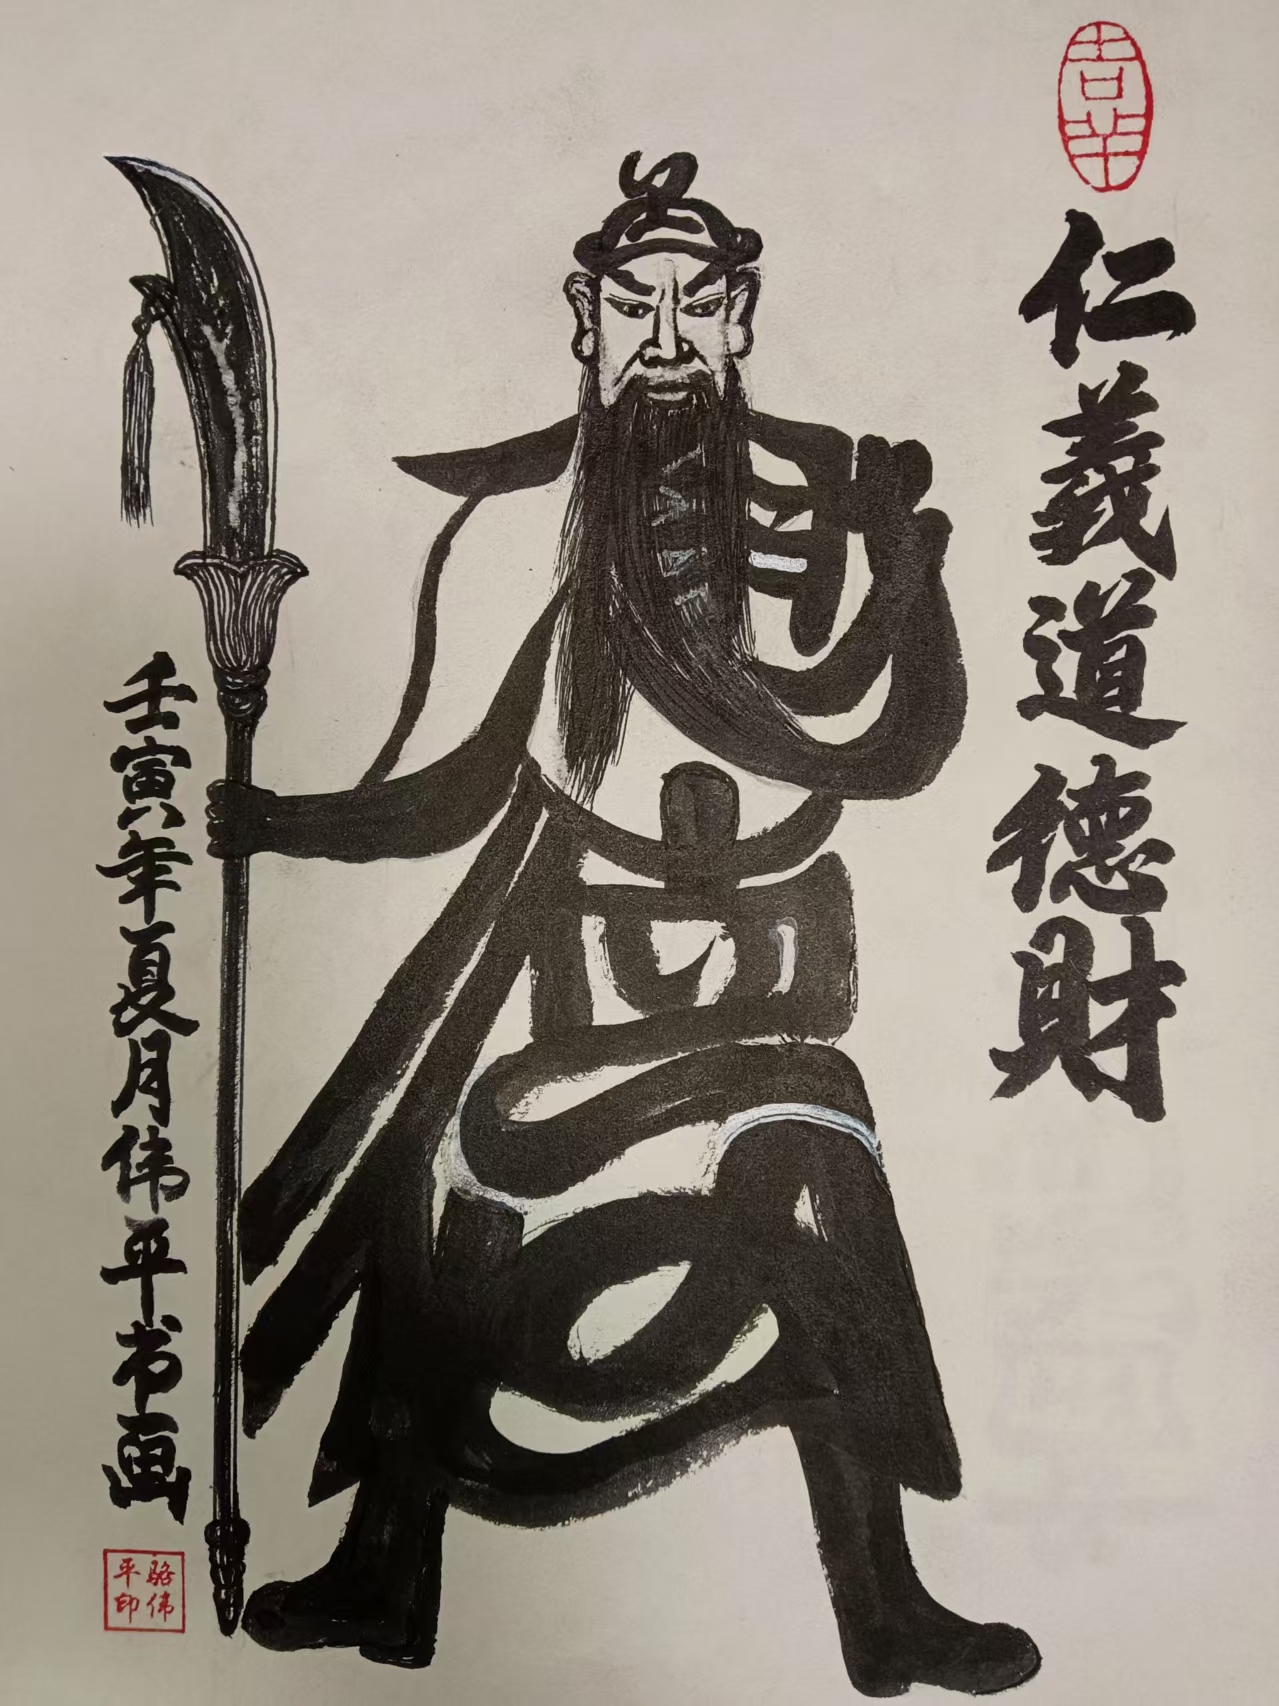 吉羊
仁義道德財
壬寅年夏月伟平书画
駱伟
平印